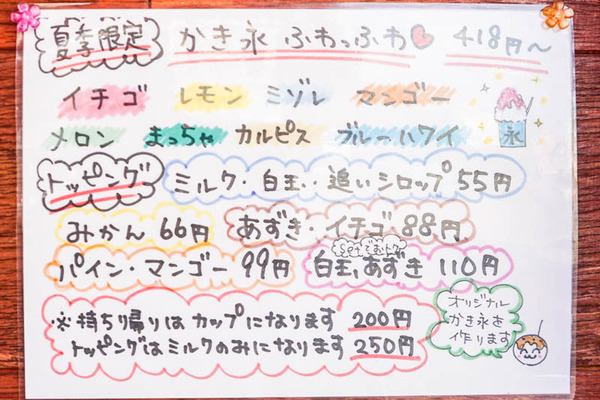 夏季限定 かき氷 ふわっふわ 418円～
イチゴ レモン ミゾレ マンゴー
メロン まっちゃ カルピス ブルーハワイ
氷
トッピング ミルク・白玉・追いシロップ 55円
みかん 66円 あずき・イチゴ 88円
setでおトク
パイン・マンゴー 99円 白玉、あずき 110円
※持ち帰りはカップになります 200円
トッピングはミルクのみになります 250円
オリジナル
かき氷を
作ります